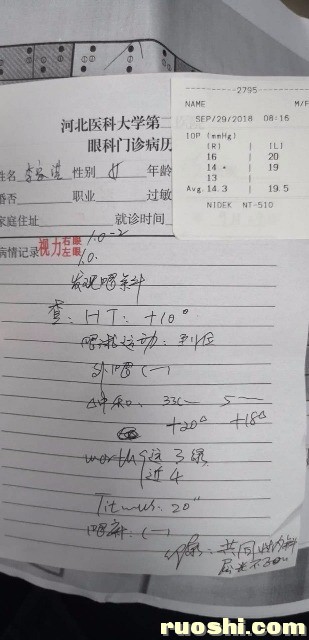 2795
NAME M/F
SEP/29/2018 08:16
IOP (mmHg)
(R) | (L)
16 | 20
14 * | 19
13 |
Avg. 14.3 | 19.5
NIDEK NT-510
河北医科大学第二
眼科门诊病历
姓名 性别 女 年龄
婚否 职业 过敏
家庭住址 就诊时间
病情记录 视力右眼 1.0-2
左眼 1.0
发现眼
查: HT: +10°
眼球运动: 到位
外眼(一)
33cm 5m
+20△ +18△
worth4 远3
近4
Titmus: 20"
(一)
共同性内斜
ruoshi.com